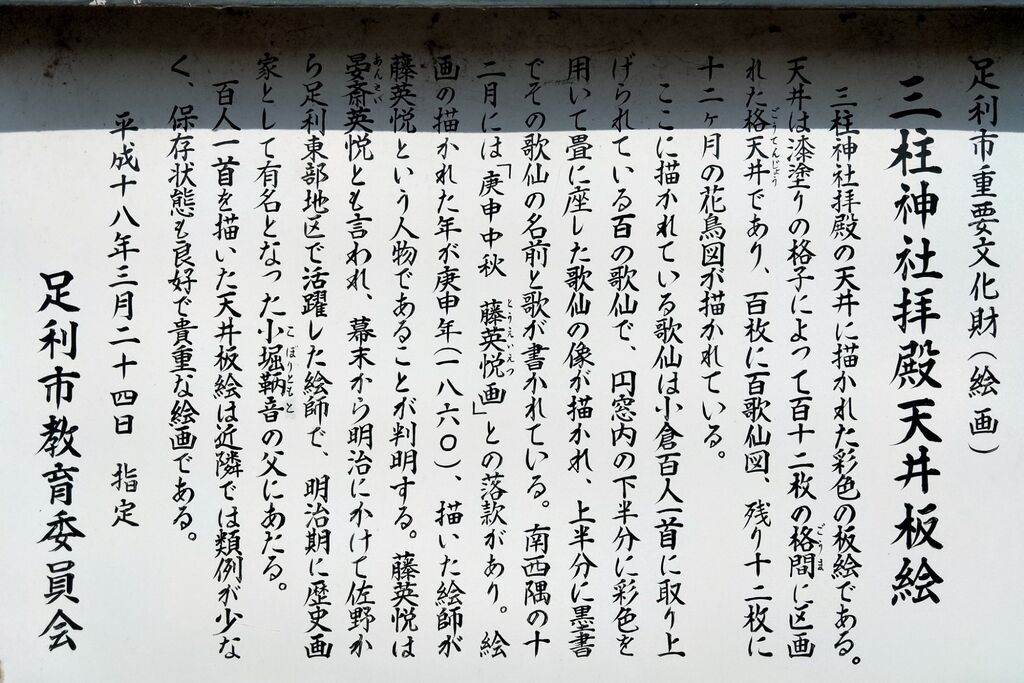 足利市重要文化財(絵画)
三柱神社拝殿天井板絵
三柱神社拝殿の天井に描かれた彩色の板絵である。
天井は漆塗りの格子によって百十二枚の格間に区画
ごうま
れた格天井であり、百枚に百歌仙図、残り十二枚に
ごうてんじょう
十二ヶ月の花鳥図が描かれている。
ここに描かれている歌仙は小倉百人一首に取り上
げられている百の歌仙で、円窓内の下半分に彩色を
用いて畳に座した歌仙の像が描かれ、上半分に墨書
でその歌仙の名前と歌が書かれている。南西隅の十
二月には「庚申中秋 藤英悦画」との落款があり。絵
とうえいえつ
画の描かれた年が庚申年(一八六〇)、描いた絵師が
藤英悦という人物であることが判明する。藤英悦は
晏斎英悦とも言われ、幕末から明治にかけて佐野か
あんさい
ら足利東部地区で活躍した絵師で、明治期に歴史画
家として有名となった小堀鞆音の父にあたる。
こぼりともと
百人一首を描いた天井板絵は近隣では類例が少な
く、保存状態も良好で貴重な絵画である。
平成十八年三月二十四日 指定
足利市教育委員会